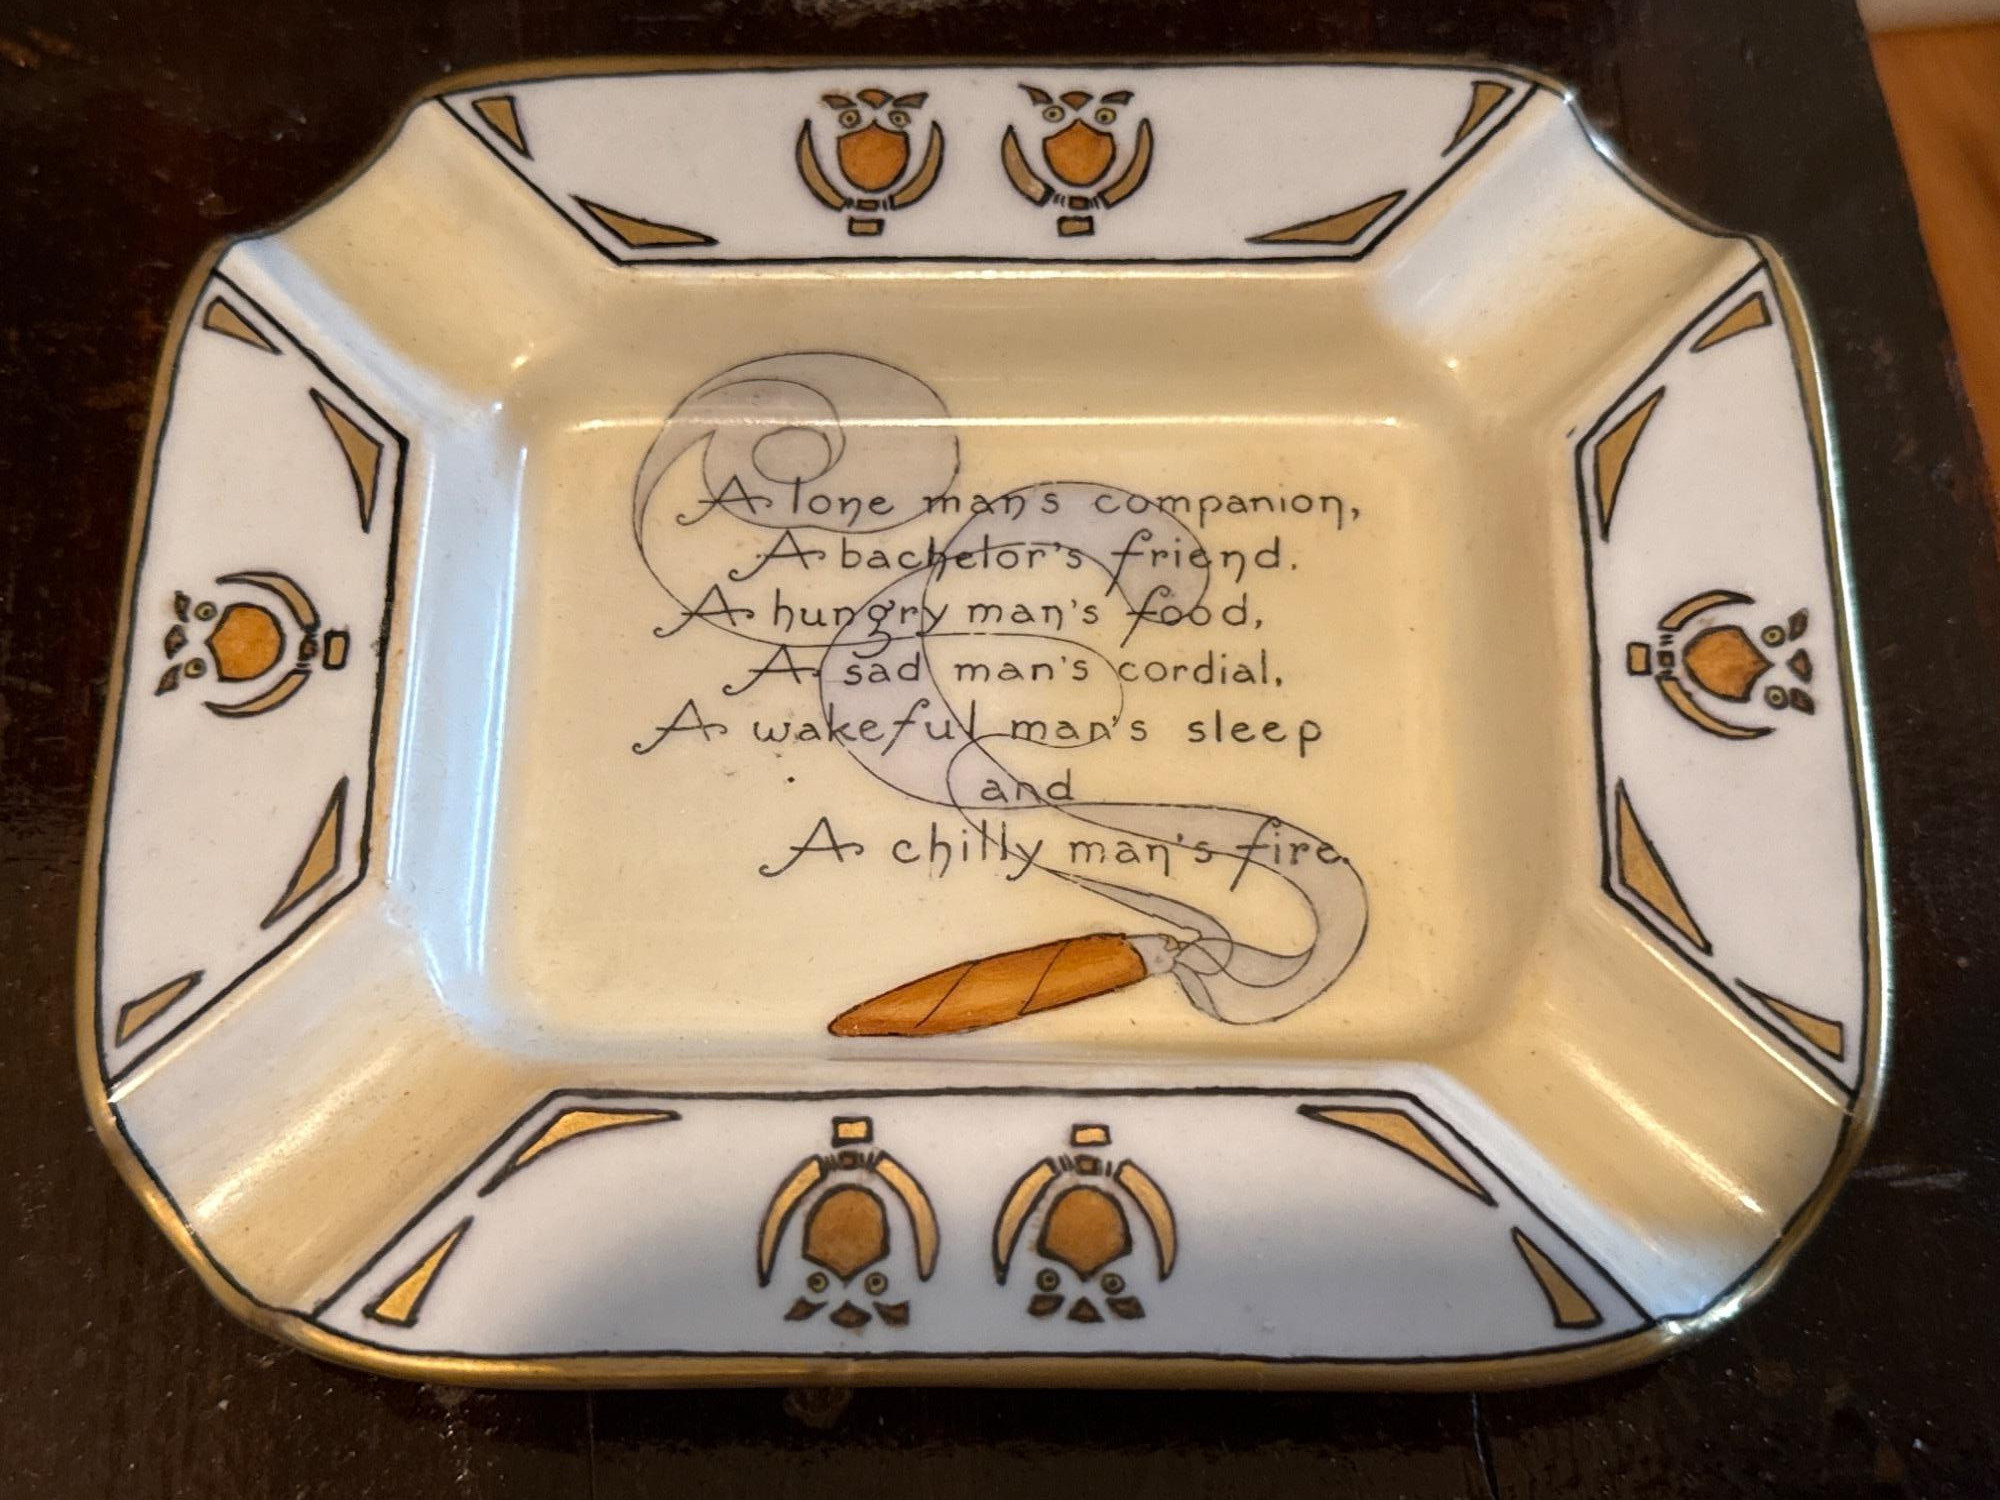 A lone man's companion,
A bachelor's friend.
A hungry man's food,
A sad man's cordial,
A wakeful man's sleep
and
A chilly man's fire.